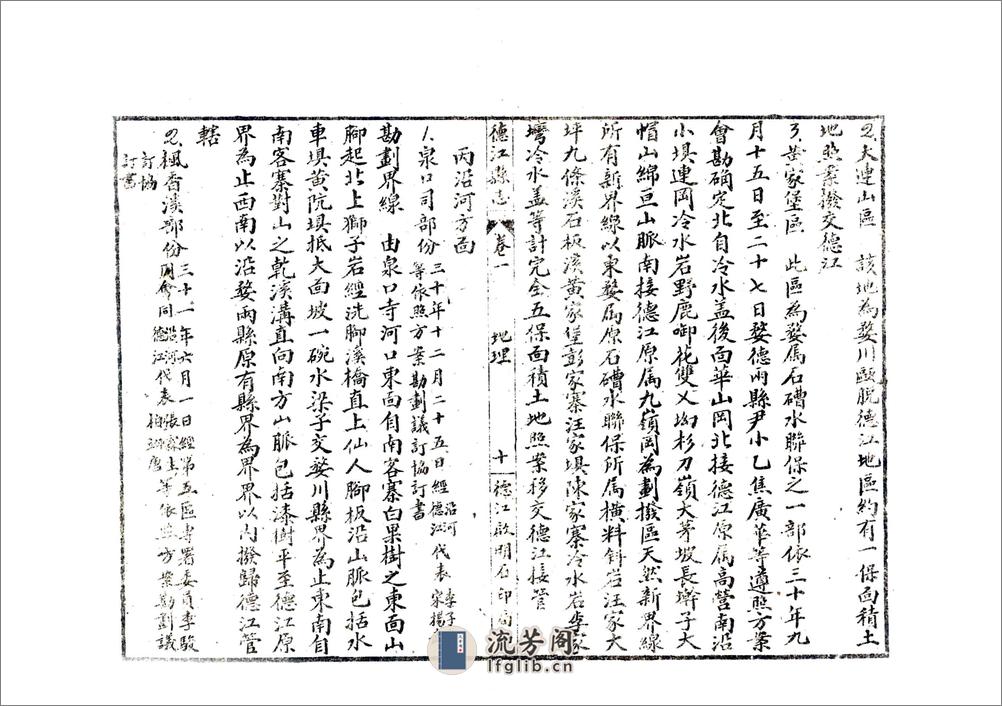 2.大連山區 該地為婺川甌脫德江地區約有一保面積土
地照案撥交德江
3.黃家堡區 此區為婺屬石磄水聯保之一部依三十年九
月十五日至二十七日婺德兩縣尹小乙焦廣華等遵照方案
會勘確定北自冷水盖後面華山岡北接德江原屬高營南沿
小埧連岡冷水岩野鹿啣花雙乂坳杉刀嶺大茅坡長塝子大
帽山綿亘山脈南接德江原屬九嶺岡為劃撥區天然新界線
所有新界線以東婺屬原石磄水聯保所屬橫料斜岩汪家大
坪九條溪石板溪黃家堡彭家寨汪家埧陳家寨冷水岩李家
塆冷水盖等計完全五保面積土地照案移交德江接管
德江縣志 卷一 地理 十 德江啟明石印局
丙沿河方面
1.泉口司部份 三十年十二月二十五日經 沿河 德江 代表 李子 宋揚
等依照方案勘劃議訂協訂書
勘劃界線 由泉口寺河口東面自南客寨白果樹之東面山
腳起北上獅子岩經洗腳溪橋直上仙人腳板沿山脈包括水
車埧黃院埧抵大面坡一碗水梁子交婺川縣界為止東南自
南客寨對山之乾溪溝直向南方山脈包括漆樹平至德江原
界為止西南以沿婺兩縣原有縣界為界界以內撥歸德江管
轄
2.楓香溪部份 三十一年六月一日經第五區專署委員李駿
明會同 沿河 德江 代表 張 等依照方案勘劃議
訂協
訂書
流芳阁
lfglib.cn